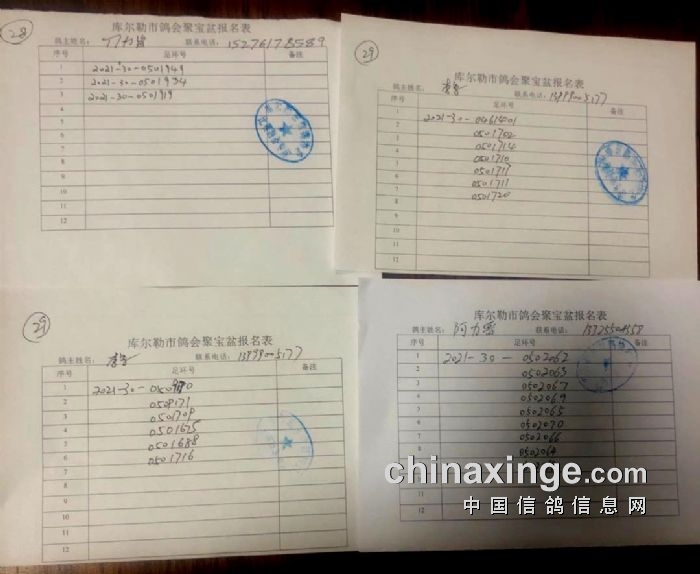 28
库尔勒市鸽会聚宝盆报名表
鸽主姓名： 联系电话：15276178589
序号 足环号 备注
1 2021-30-0501949
2 2021-30-0501934
3 2021-30-0501919
4
5
6
7
8
9
10
11
12
29
库尔勒市鸽会聚宝盆报名表
鸽主姓名： 联系电话：13899005177
序号 足环号 备注
1
2 0501702
3 0501714
4 0501710
5
6 0501711
7 0501720
8
9
10
11
12
29
库尔勒市鸽会聚宝盆报名表
鸽主姓名： 联系电话：13899005177
序号 足环号 备注
1 2021-30-
2
3 0501709
4 0501675
5 0501688
6 0501716
7
8
9
10
11
12
库尔勒市鸽会聚宝盆报名表
鸽主姓名： 联系电话：
序号 足环号 备注
1 2021-30-0502062
2 0502063
3 0502067
4 0502069
5 0502065
6 0502070
7 0502066
8 0502064
12
chinaxinge.com
中国信鸽信息网